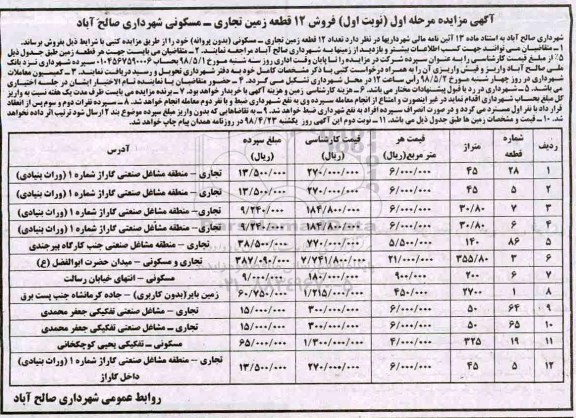 آگهی مزایده مرحله اول (نوبت اول) فروش ۱۲ قطعه زمین تجاری ـ مسکونی شهرداری صالح آباد
شهرداری صالح آباد به استناد ماده ۱۳ آئین نامه مالی شهرداریها در نظر دارد تعداد ۱۲ قطعه زمین تجاری ـ مسکونی (بدون پروانه) خود را از طریق مزایده کتبی با شرایط ذیل بفروش برساند.
۱ـ متقاضیان می توانند جهت کسب اطلاعات بیشتر و بازدید از زمینها به شهرداری صالح آباد مراجعه نمایند. ۲ـ متقاضیان می بایست جهت هر قطعه زمین طبق جدول ذیل
۵٪ از مبلغ قیمت کارشناسی را به عنوان سپرده شرکت در مزایده را تا پایان وقت اداری روز سه شنبه مورخ ۹۸/۵/۱ بحساب ۰۱۰۴۵۶۷۵۹۰۰۶ سپرده شهرداری نزد بانک
ملی صالح آباد واریز و فیش واریزی آن را به همراه درخواست کتبی با ذکر مشخصات کامل خود به دفتر شهرداری تحویل و رسید دریافت نمایند. ۳ـ کمیسیون معاملات
شهرداری در روز چهار شنبه مورخ ۹۸/۵/۲ رأس ساعت ۱۲ در محل شهرداری تشکیل می گردد. ۴ـ حضور متقاضیان یا نماینده تام الاختیار ایشان در جلسه اختیاری
می باشد. ۵ـ شهرداری در رد یا قبول پیشنهادات مختار می باشد. ۶ـ هزینه کارشناسی زمین و هزینه آگهی با خریدار خواهد بود. ۷ـ برنده مزایده می بایست ظرف مدت یک هفته نسبت به واریز
کل مبلغ بحساب شهرداری اقدام نماید در غیر اینصورت و امتناع از انجام معامله سپرده وی به نفع شهرداری ضبط و با نفر دوم معامله انجام خواهد شد. ۸ـ سپرده نفرات دوم و سوم پس از انعقاد
قرار داد با نفر اول مسترد می گردد و در صورت انصراف سپرده افراد به نفع شهرداری ضبط خواهد شد. ۹ـ به تقاضاهایی که بدون واریز مبلغ سپرده موضوع بند ۲ ارسال شود ترتیب اثر داده نخواهد
شد. ۱۰ـ قیمت و مشخصات زمین ها طبق جدول ذیل می باشد. ۱۱ـ نوبت دوم این آگهی روز یکشنبه ۹۸/۴/۲۳ در روزنامه همدان پیام چاپ خواهد شد.
ردیف شماره قطعه متراژ قیمت هر متر مربع(ریال) قیمت کارشناسی (ریال) مبلغ سپرده (ریال) آدرس
۱ ۲۸ ۴۵ ۶/۰۰۰/۰۰۰ ۲۷۰/۰۰۰/۰۰۰ ۱۳/۵۰۰/۰۰۰ تجاری – منطقه مشاغل صنعتی گاراژ شماره ۱ (وراث بنیادی)
۲ ۵ ۴۵ ۶/۰۰۰/۰۰۰ ۲۷۰/۰۰۰/۰۰۰ ۱۳/۵۰۰/۰۰۰ تجاری – منطقه مشاغل صنعتی گاراژ شماره ۱ (وراث بنیادی)
۳ ۷ ۳۰/۸۰ ۶/۰۰۰/۰۰۰ ۱۸۴/۸۰۰/۰۰۰ ۹/۲۴۰/۰۰۰ تجاری – منطقه مشاغل صنعتی گاراژ شماره ۱ (وراث بنیادی)
۴ ۶ ۳۰/۸۰ ۶/۰۰۰/۰۰۰ ۱۸۴/۸۰۰/۰۰۰ ۹/۲۴۰/۰۰۰ تجاری – منطقه مشاغل صنعتی گاراژ شماره ۱ (وراث بنیادی)
۵ ۸۶ ۱۴۰ ۵/۵۰۰/۰۰۰ ۷۷۰/۰۰۰/۰۰۰ ۳۸/۵۰۰/۰۰۰ تجاری – منطقه مشاغل صنعتی جنب کارگاه بیرجندی
۶ ۳ ۳۵۵/۸۰ ۲۱/۰۰۰/۰۰۰ ۷/۷۴۱/۸۰۰/۰۰۰ ۳۸۷/۰۹۰/۰۰۰ تجاری و مسکونی – میدان حضرت ابوالفضل (ع)
۷ ۶ ۲۰۰ ۹۰۰/۰۰۰ ۱۸۰/۰۰۰/۰۰۰ ۹/۰۰۰/۰۰۰ مسکونی – انتهای خیابان رسالت
۸ ۱ ۲۷۰۰ ۴۵۰/۰۰۰ ۱/۲۱۵/۰۰۰/۰۰۰ ۶۰/۷۵۰/۰۰۰ زمین بایر(بدون کاربری) – جاده کرمانشاه جنب پست برق
۹ ۶۴ ۵۰ ۶/۰۰۰/۰۰۰ ۳۰۰/۰۰۰/۰۰۰ ۱۵/۰۰۰/۰۰۰ تجاری – مشاغل صنعتی تفکیکی جعفر محمدی
۱۰ ۶۵ ۵۰ ۶/۰۰۰/۰۰۰ ۳۰۰/۰۰۰/۰۰۰ ۱۵/۰۰۰/۰۰۰ تجاری – مشاغل صنعتی تفکیکی جعفر محمدی
۱۱ ۱۹ ۳۲۵ ۴/۰۰۰/۰۰۰ ۱/۳۰۰/۰۰۰/۰۰۰ ۶۵/۰۰۰/۰۰۰ مسکونی ـ تفکیکی یحیی کوچکخانی
۱۲ ۵ ۴۵ ۶/۰۰۰/۰۰۰ ۲۷۰/۰۰۰/۰۰۰ ۱۳/۵۰۰/۰۰۰ تجاری – منطقه مشاغل صنعتی گاراژ شماره ۱ (وراث بنیادی) داخل گاراژ
روابط عمومی شهرداری صالح آباد